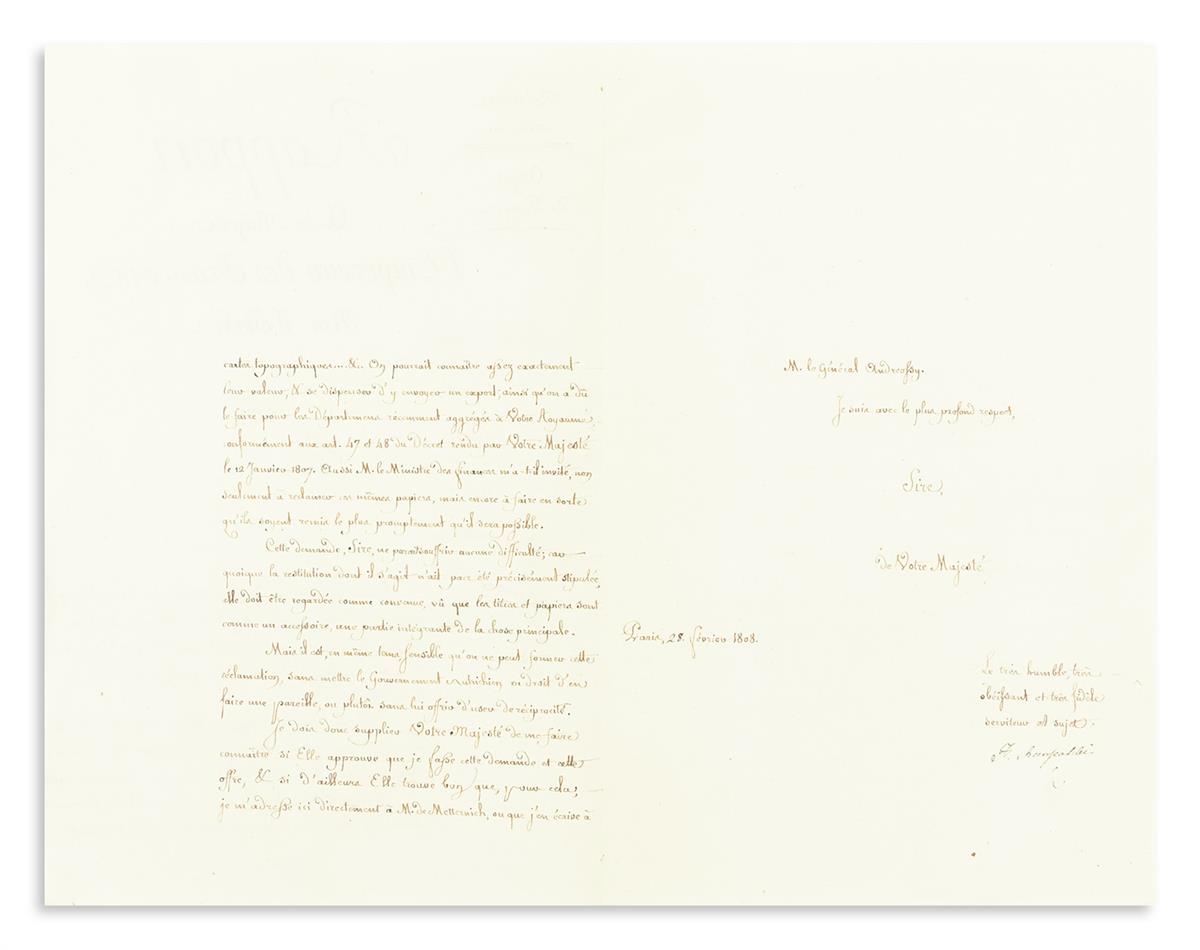 cartes topographiques....&. On pourrait connaître assez exactement
leur valeur, & se dispenser d'y envoyer un expert; ainsi qu'on a dû
le faire pour les Départemens récemment aggrégés à Votre Royaume,
conformément aux art. 47 et 48 du Décret rendu par Votre Majesté
le 12 Janvier 1807. Aussi M. le Ministre des finances m'a-t-il invité, non
seulement à réclamer ces mêmes papiers, mais encore à faire en sorte
qu'ils soyent remis le plus promptement qu'il sera possible.
Cette demande, Sire, ne paraît souffrir aucune difficulté; car
quoique la restitution dont il s'agit n'ait pas été précisément stipulée,
elle doit être regardée comme convenue, vû que les titres et papiers sont
comme un accessoire, une partie intégrante de la chose principale.
Mais il est, en même tems sensible qu'on ne peut former cette
réclamation, sans mettre le Gouvernement Autrichien en droit d'en
faire une pareille, ou plutôt sans lui offrir d'user de réciprocité.
Je dois donc supplier Votre Majesté de me faire
connaître si Elle approuve que je fasse cette demande et cette
offre, & si d'ailleurs Elle trouve bon que, pour cela,
je m'adresse ici directement à M. de Metternich, ou que j'en écrive à
M. le Général Andreossy.
Je suis avec le plus profond respect,
Sire,
de Votre Majesté
Paris, 28. février 1808.
Le très humble, très
obéissant et très fidèle
serviteur et sujet.